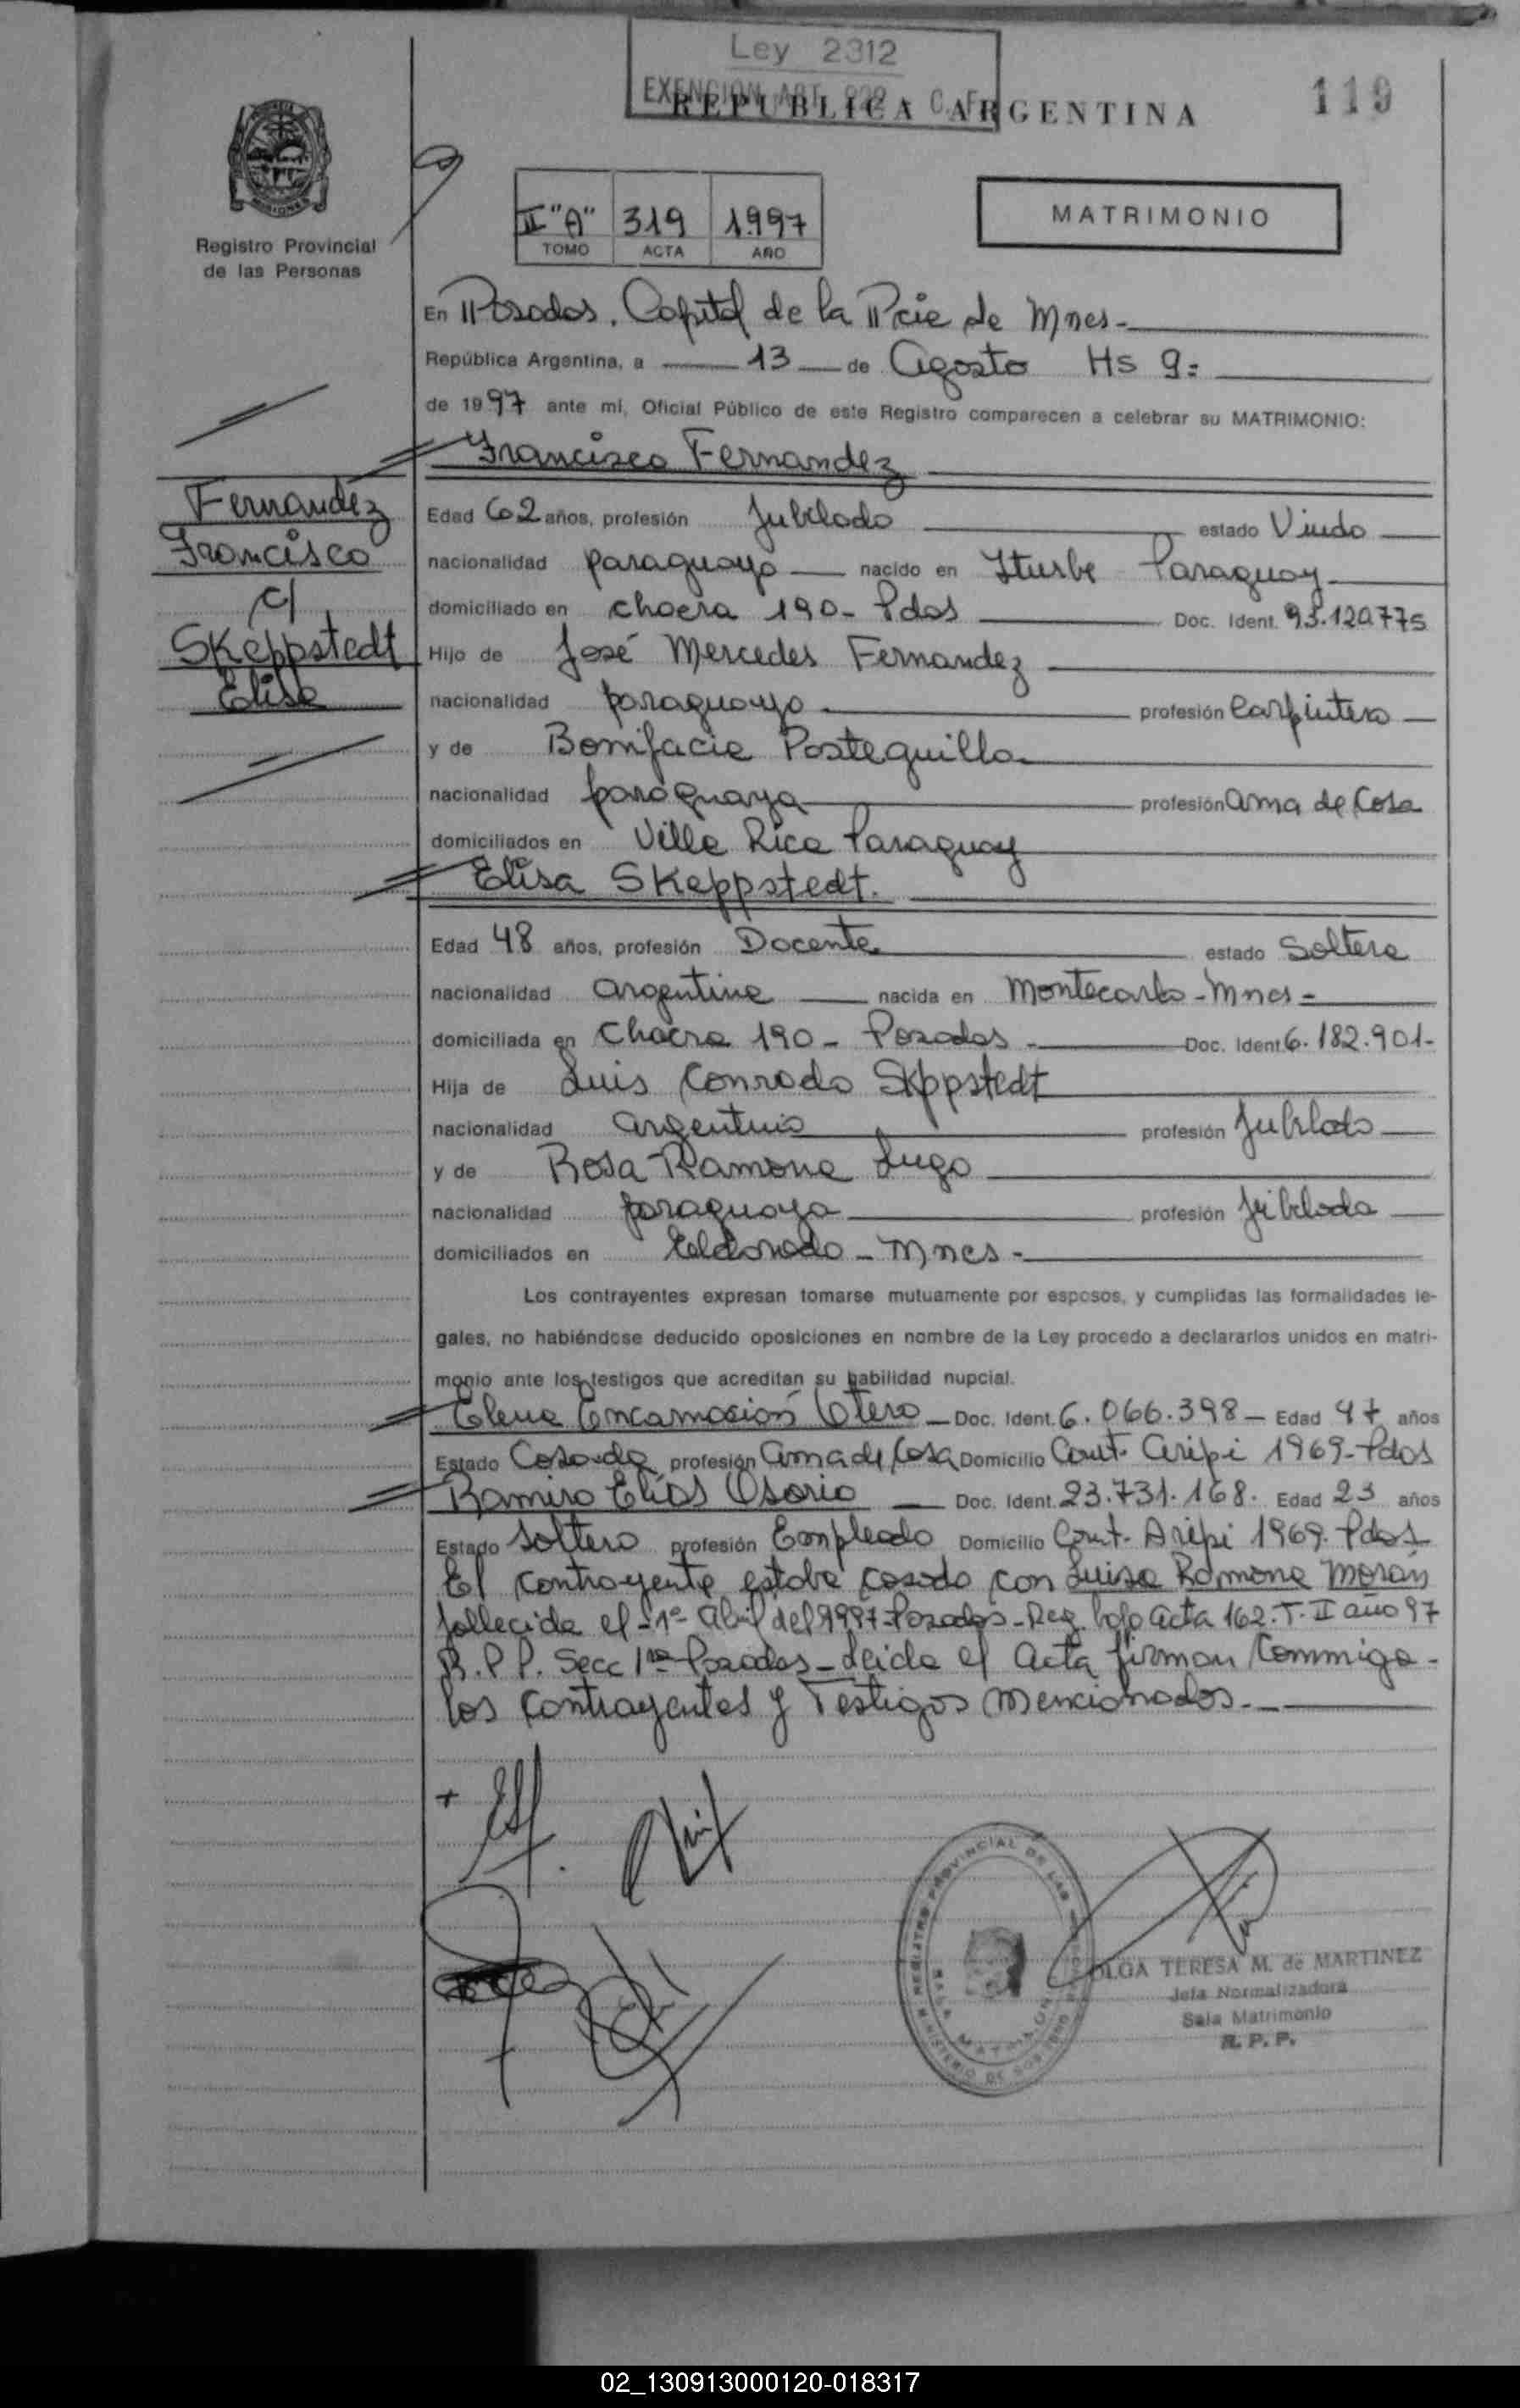 Ley 2312
EXENCION ART. 222 C.F.
REPUBLICA ARGENTINA
119
MISIONES
Registro Provincial
de las Personas
II "A" 319 1997
TOMO ACTA AÑO
MATRIMONIO
En Posadas, Capital de la Pcia de Mnes-
República Argentina, a 13 de Agosto Hs 9:
de 1997 ante mi, Oficial Público de este Registro comparecen a celebrar su MATRIMONIO:
Francisco Fernandez
Fernandez
Francisco
c/
Skeppstedt
Elisa
Edad 62 años, profesión Jubilado estado Viudo
nacionalidad paraguayo nacido en Iturbe Paraguay
domiciliado en chacra 190- Pdas Doc. Ident. 93.120.775
Hijo de José Mercedes Fernandez
nacionalidad paraguayo profesión Carpintero
y de Bonifacia Postequilla
nacionalidad paraguaya profesión ama de Casa
domiciliados en Villa Rica Paraguay
Elisa Skeppstedt.
Edad 48 años, profesión Docente estado Soltera
nacionalidad argentina nacida en Montecarlo-Mnes-
domiciliada en Chacra 190- Posadas- Doc. Ident 6.182.901-
Hija de Luis Conrado Skppstedt
nacionalidad argentino profesión Jubilado
y de Rosa Ramona Lugo
nacionalidad paraguaya profesión jubilada
domiciliados en Eldorado - Mnes-
Los contrayentes expresan tomarse mutuamente por esposos, y cumplidas las formalidades le-
gales, no habiéndose deducido oposiciones en nombre de la Ley procedo a declararlos unidos en matri-
monio ante los testigos que acreditan su habilidad nupcial.
Elena Encarnación Otero - Doc. Ident. 6.066.398- Edad 47 años
Estado Casada profesión ama de Casa Domicilio Cont. Aripi 1969-Pdas
Ramiro Elias Osorio Doc. Ident. 23.731.168. Edad 23 años
Estado Soltero profesión Empleado Domicilio Cont. Aripi 1969. Pdas
El contrayente estaba casado con Luisa Ramona Morán
fallecida el -1º Abril del 1997-Posadas-Reg. bajo acta 162.T.II año 97
R.P.P. Secc 1ra Posadas-Leida el Acta firman Conmigo-
los contrayentes y Testigos mencionados.-
REGISTRO PROVINCIAL DE LAS
SALA MATRIMONIO
MINISTERIO DE GOBIERNO
OLGA TERESA M. de MARTINEZ
Jefa Normalizadora
Sala Matrimonio
R. P. P.
02_130913000120-018317